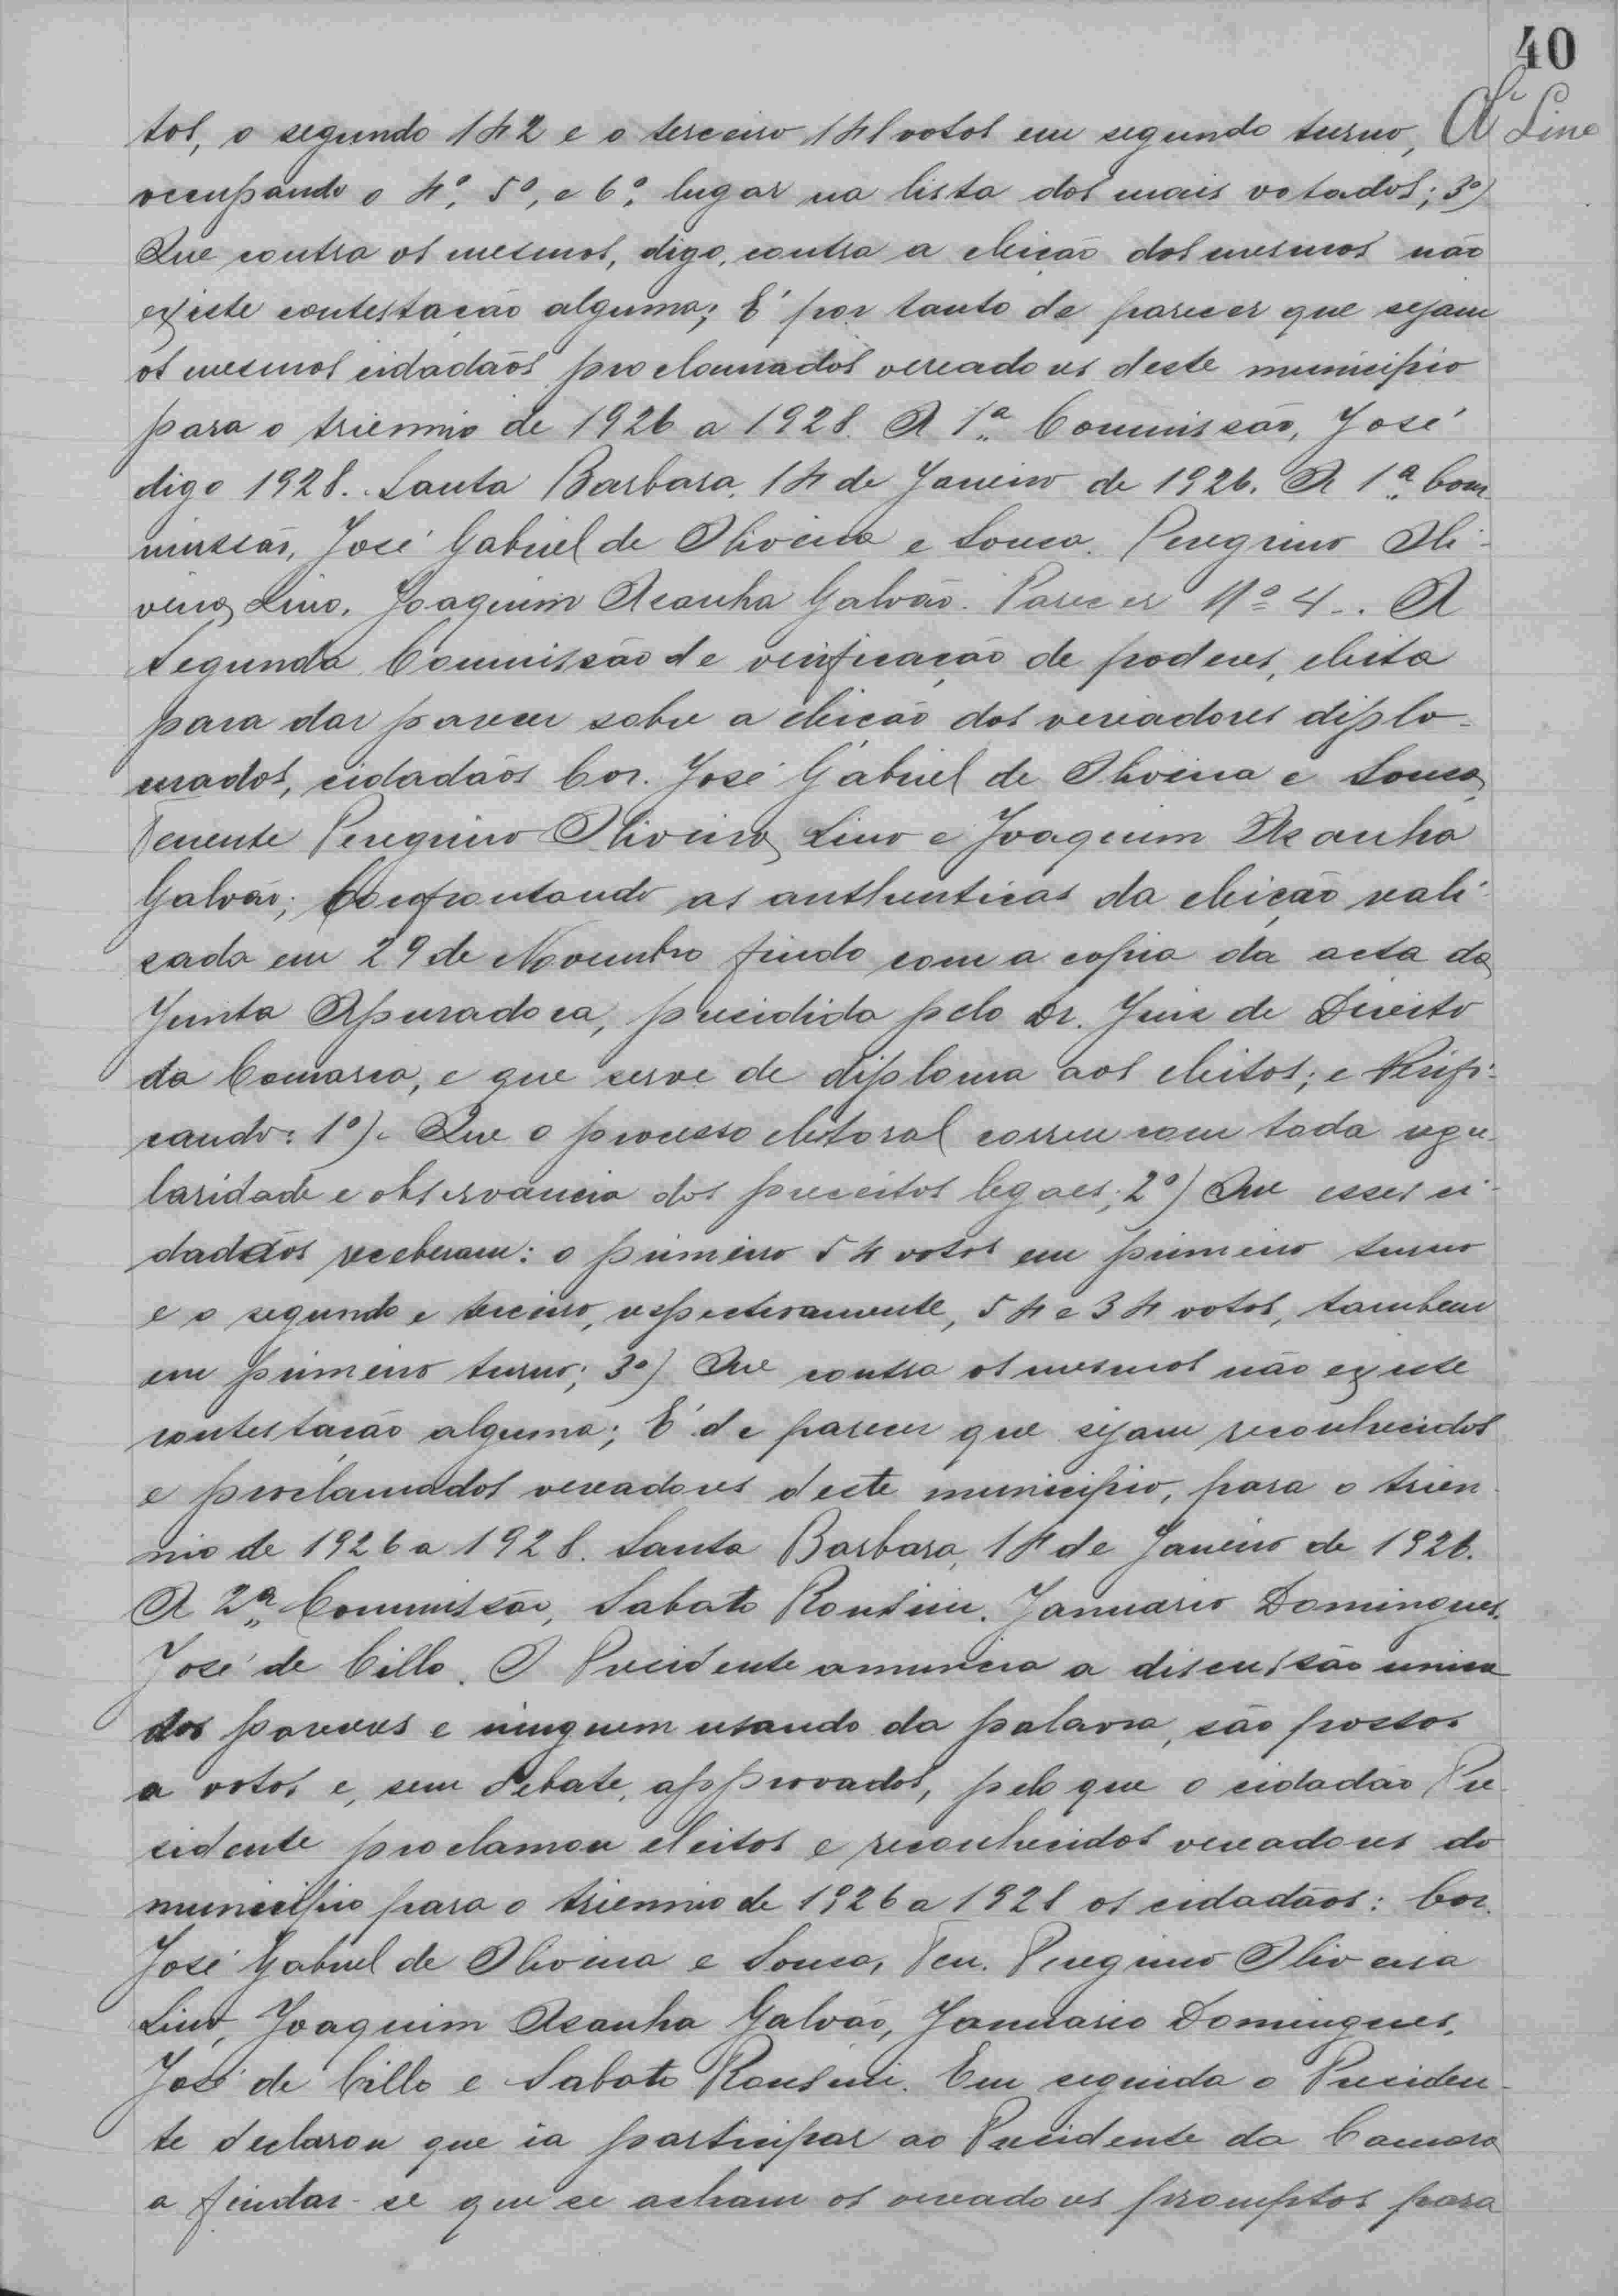 40
Ol Lino
tos, o segundo 142 e o terceiro 141 votos em segundo turno,
occupando o 4º, 5º, e 6º, lugar na lista dos mais votados; 3º)
Que contra os mesmos, digo, contra a eleição dos mesmos não
existe contestação alguma; E' por tanto de parecer que sejam
os mesmos cidadãos proclamados vereadores deste municipio
para o triennio de 1926 a 1928. A 1ª Commissão, José
digo 1928. Santa Barbara, 14 de Janeiro de 1926. A 1ª Com
missão, José Gabriel de Oliveira e Souza. Peregrino Oli-
veira Lino. Joaquim Azanha Galvão. Parecer Nº 4.. A
Segunda Commissão de verificação de poderes, eleita
para dar parecer sobre a eleição dos vereadores diplo-
mados, cidadãos Cor. José Gabriel de Oliveira e Souza,
Tenente Peregrino Oliveira Lino e Joaquim Azanha
Galvão; Confrontando as authenticas da eleição reali-
zada em 29 de Novembro findo com a copia da acta da
Junta Apuradora, presidida pelo Dr. Juiz de Direito
da Comarca, e que serve de diploma aos eleitos; e Verifi-
cando: 1º). Que o processo eleitoral correu com toda regu-
laridade e observancia dos preceitos legaes; 2º) Que esses ci-
dadãos receberam: o primeiro 54 votos em primeiro turno
e o segundo e terceiro, respectivamente, 54 e 34 votos, tambem
em primeiro turno; 3º) Que contra os mesmos não existe
contestação alguma; E' de parecer que sejam reconhecidos
e proclamados vereadores deste municipio, para o trien-
nio de 1926 a 1928. Santa Barbara, 14 de Janeiro de 1926.
A 2ª Commissão, Sabato Ronsini. Januario Domingues.
José de Cillo. O Presidente annuncia a discussão unica
dos pareceres e ninguem usando da palavra, são postos
a votos e, sem debate, approvados, pelo que o cidadão Pre-
sidente proclamou eleitos e reconhecidos vereadores do
municipio para o triennio de 1926 a 1928 os cidadãos: Cor.
José Gabriel de Oliveira e Souza, Ten. Peregrino Oliveira
Lino, Joaquim Azanha Galvão, Januario Domingues,
José de Cillo e Sabato Ronsini. Em seguida o Presiden-
te declarou que ia participar ao Presidente da Camara
a findar-se que se acham os vereadores promptos para